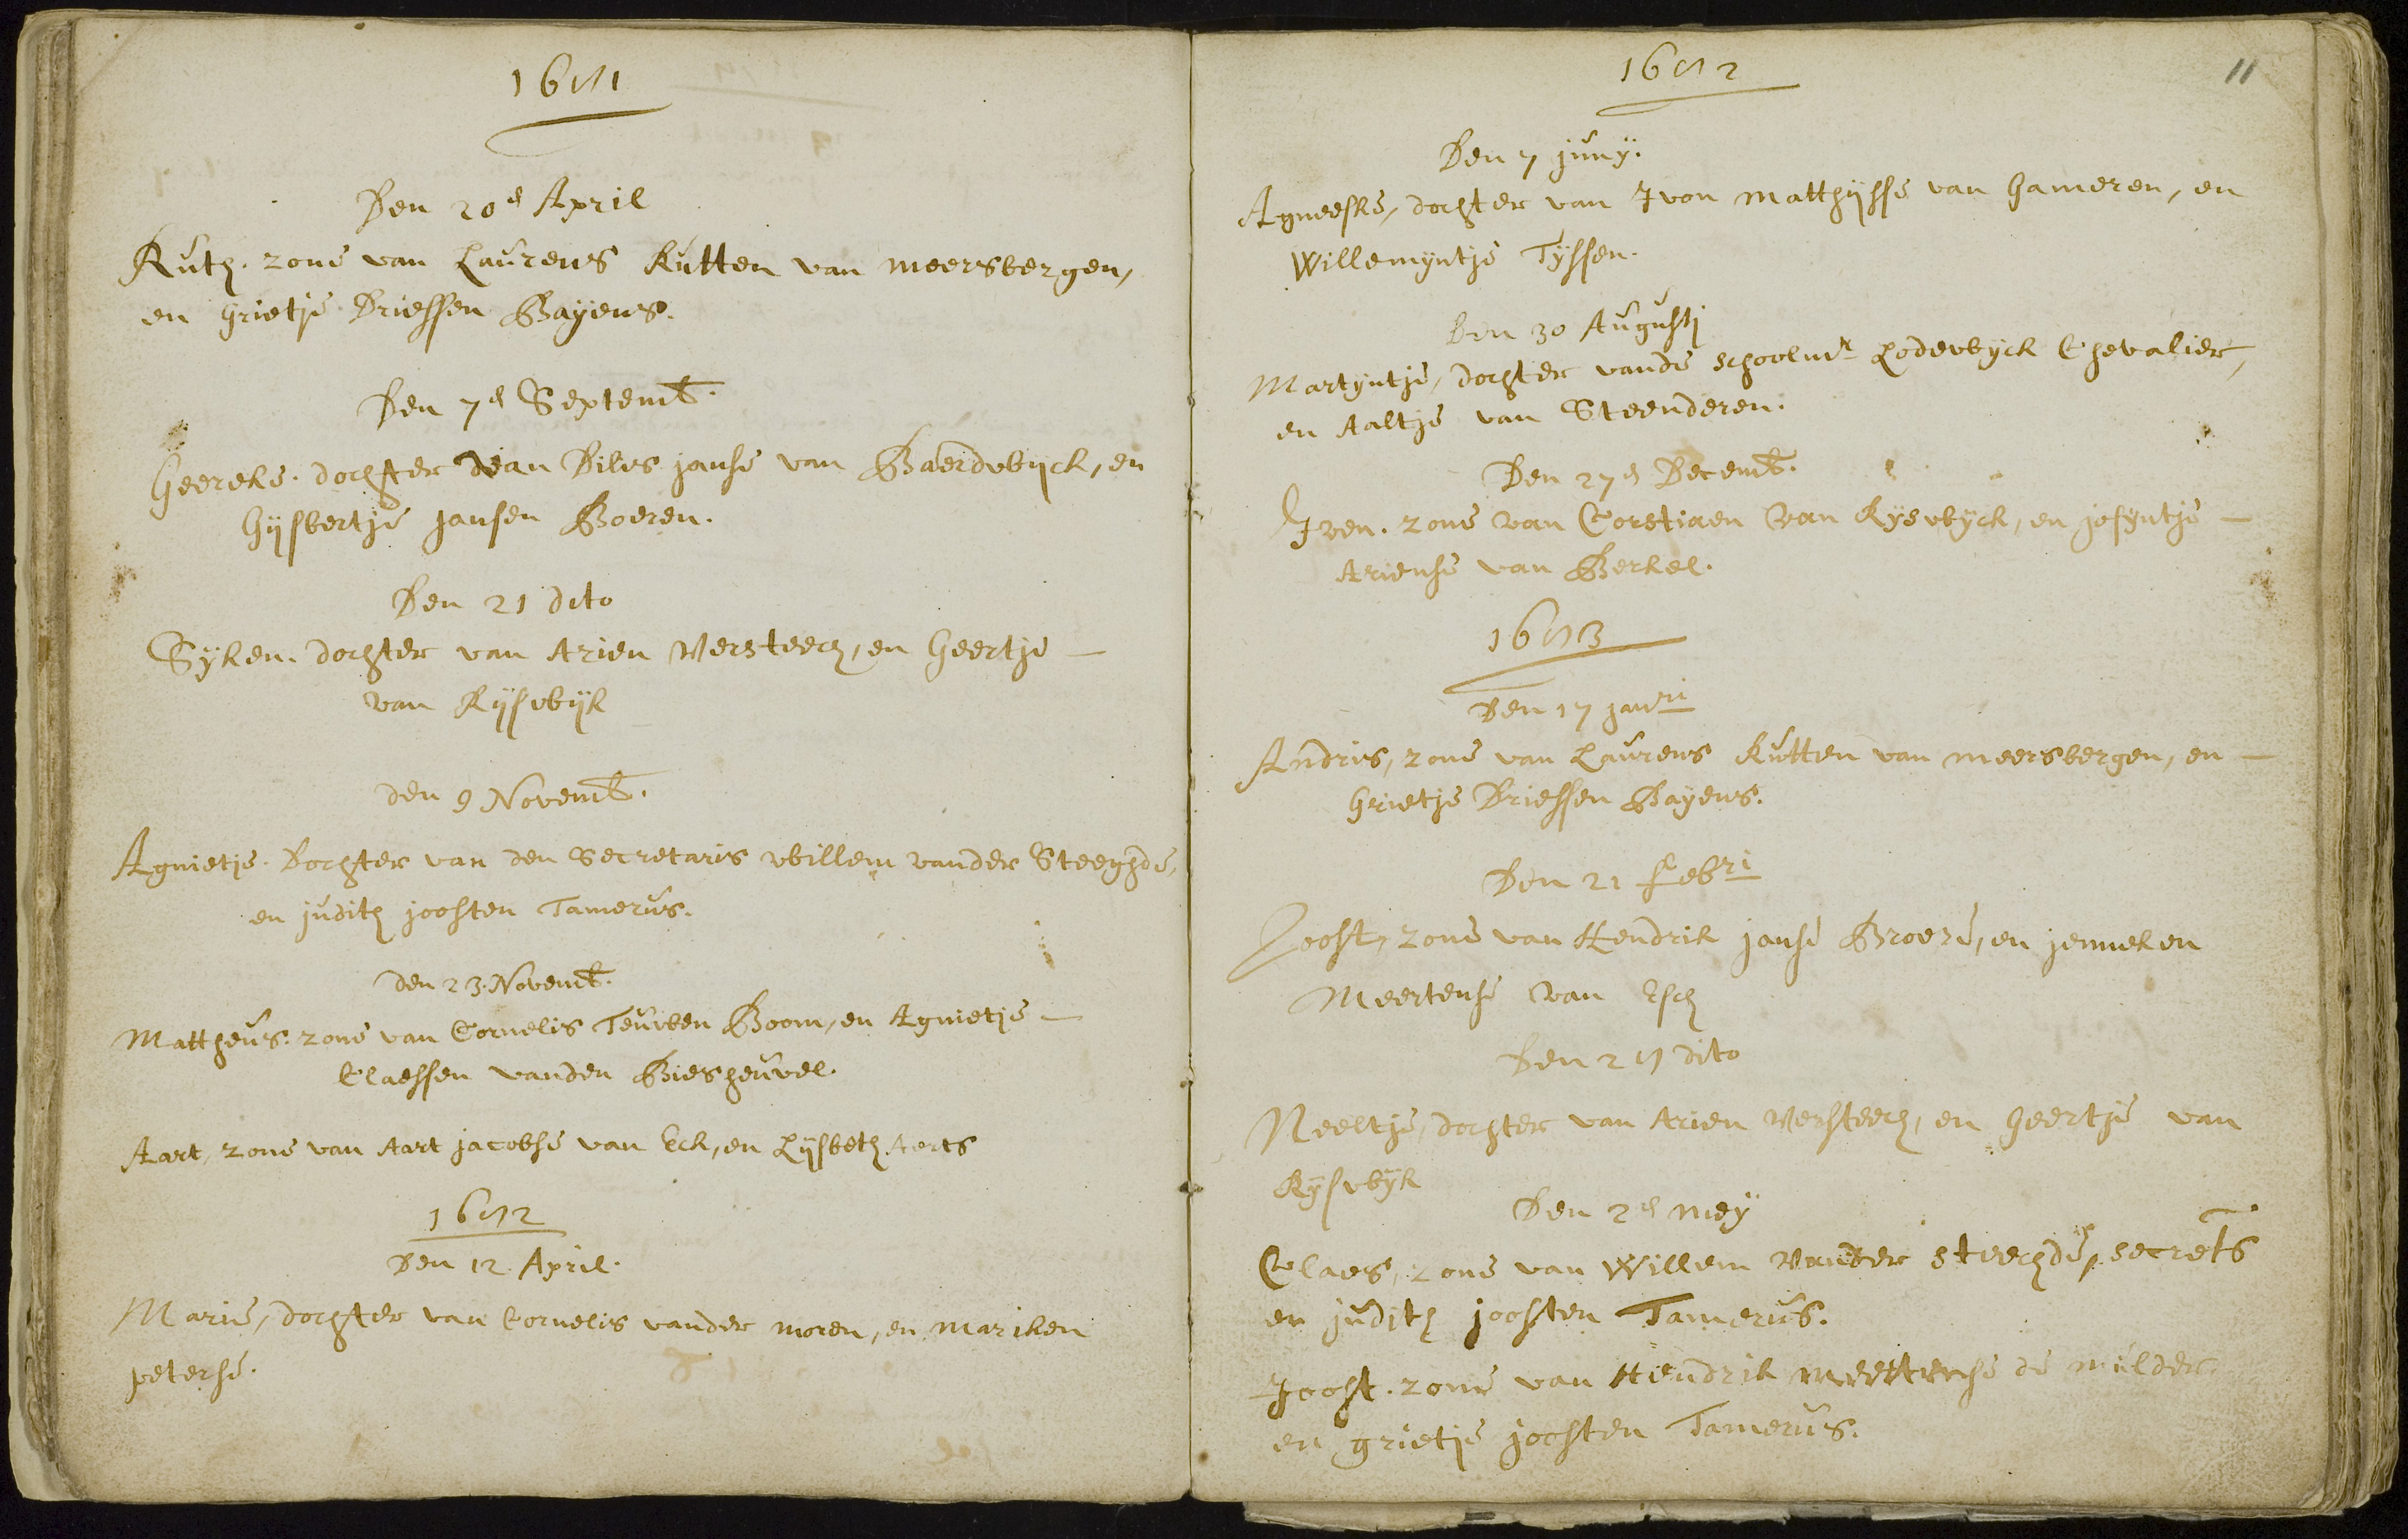 1651
Den 20e April
Ruth. zone van Laurens Rutten van Meersbergen,
en Grietje Driessen Bayens.
Den 7e Septemb.
Geereke. dochter van Dilis janse van Baerdwijck, en
Gijsbertje jansen Boeren.
Den 21 dito
Syken. dochter van Arien Versteech, en Geertje —
van Rijswijk
den 9 Novemb.
Agnietje. Dochter van den Secretaris Willem vander Steeghde,
en judith joosten Tamerus.
den 23. Novemb.
Mattheus. zone van Cornelis Teuwen Boom, en Agnietje —
Claessen vanden Biesheuvel.
Aart, zone van Aart jacobse van Eck, en Lijsbeth Aerts
1652
Den 12. April.
Marie, dochter van Cornelis vander moren, en Mariken
peterse.
1652
11
Den 7 junij.
Agneeske, dochter van Ivon Matthijsse van Gameren, en
Willemijntje Tijssen.
Den 30 Augusti
Martijntje, dochter vande schoolmr Lodewijck Chevalier,
en Aaltje van Steenderen.
Den 27e Decemb.
Iven. zone van Corstiaen van Rijswijck, en josijntje —
Ariense van Berkel.
1653
Den 17 janri
Andris, zone van Laurens Rutten van meersbergen, en —
Grietje Driessen Bayens.
Den 21 Febri
Joost, zone van Hendrik janse Broere, en jenneken
Meertense van Esch
Den 25 dito
Neeltje, dochter van Arien Versteech, en Geertje van
Rijswijk
Den 2e Mey
Claes, zone van Willem Vander steechde, secrets
en judith joosten Tamerus.
Joost. zone van Hendrik meertense de mulder
en grietje joosten Tamerus.